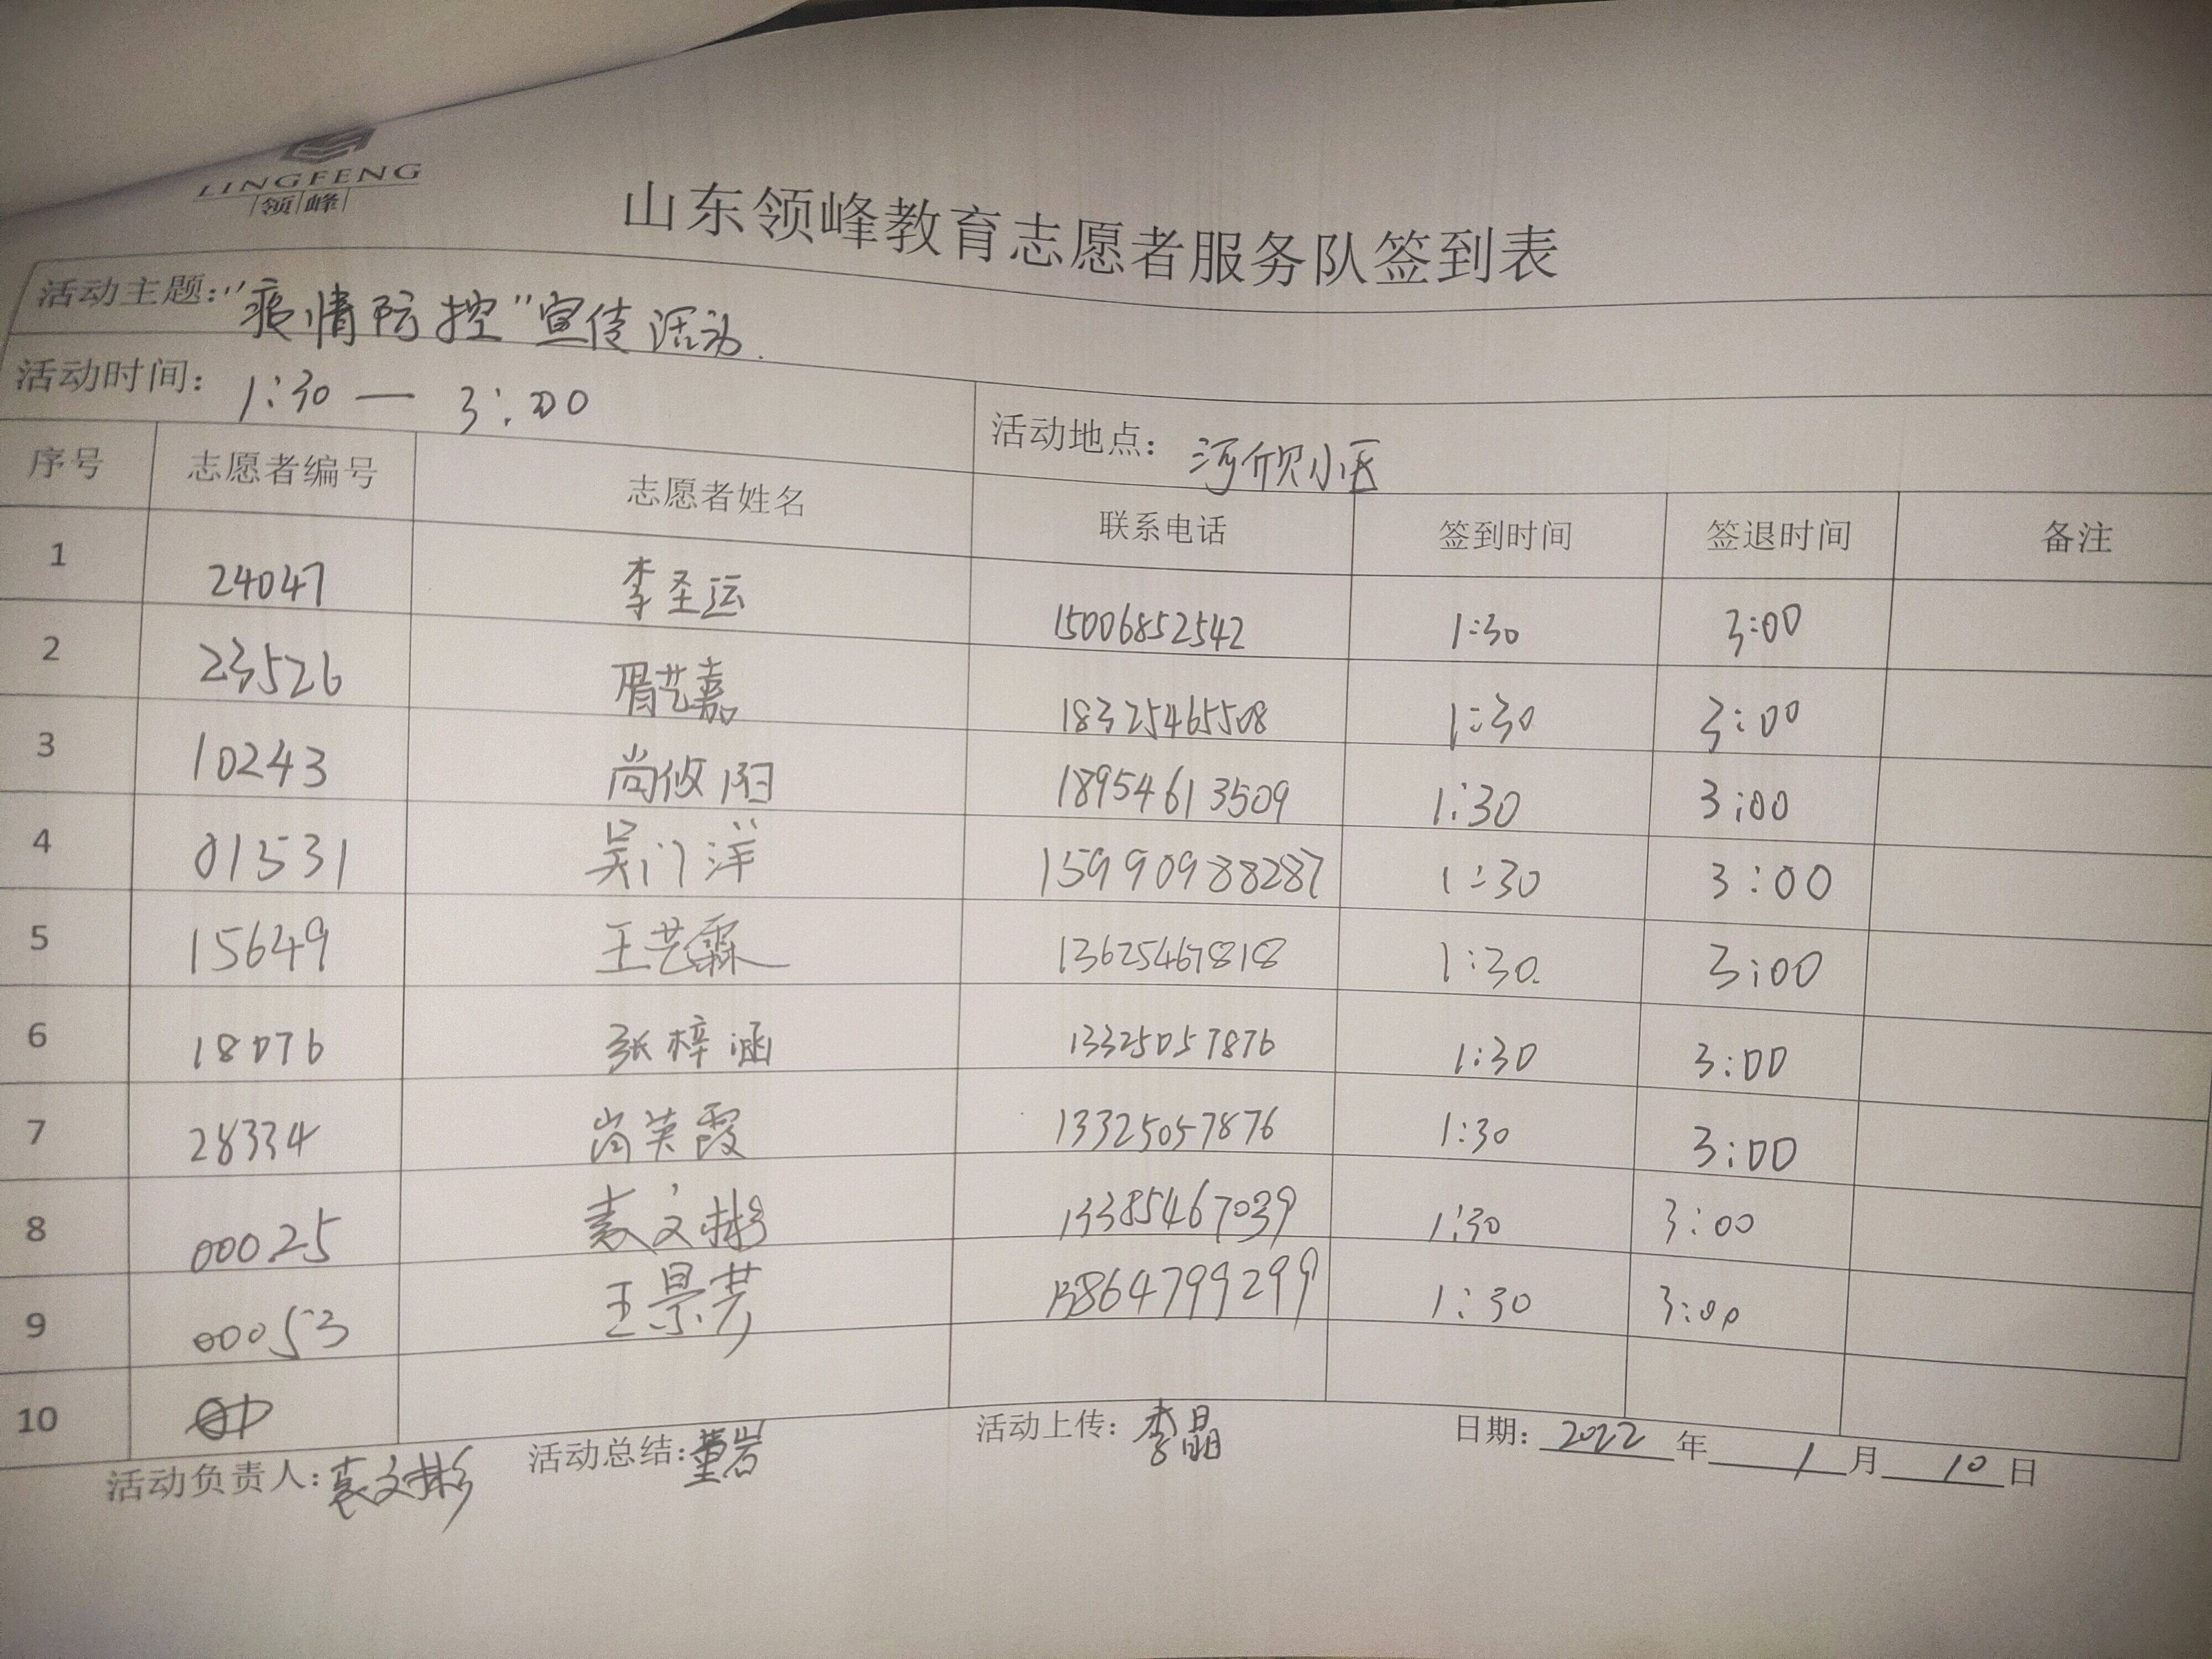 LINGFENG
领峰
山东领峰教育志愿者服务队签到表
活动主题："疫情防控"宣传活动.
活动时间： 1:30 — 3:00 活动地点： 河欣小区
序号 志愿者编号 志愿者姓名 联系电话 签到时间 签退时间 备注
1 24047 李圣运 15006852542 1:30 3:00
2 23526 胥艺嘉 18325465508 1:30 3:00
3 10243 尚攸阳 18954613509 1:30 3:00
4 01531 吴门洋 15990988287 1:30 3:00
5 15649 王艺霖 13625467818 1:30. 3:00
6 18076 张梓涵 13325057876 1:30 3:00
7 28334 尚英霞 13325057876 1:30 3:00
8 00025 袁文彬 13385467039 1:30 3:00
9 00053 王景芳 13864799299 1:30 3:00
10
活动负责人：袁文彬 活动总结：董岩 活动上传：李晶 日期：2022年1月10日